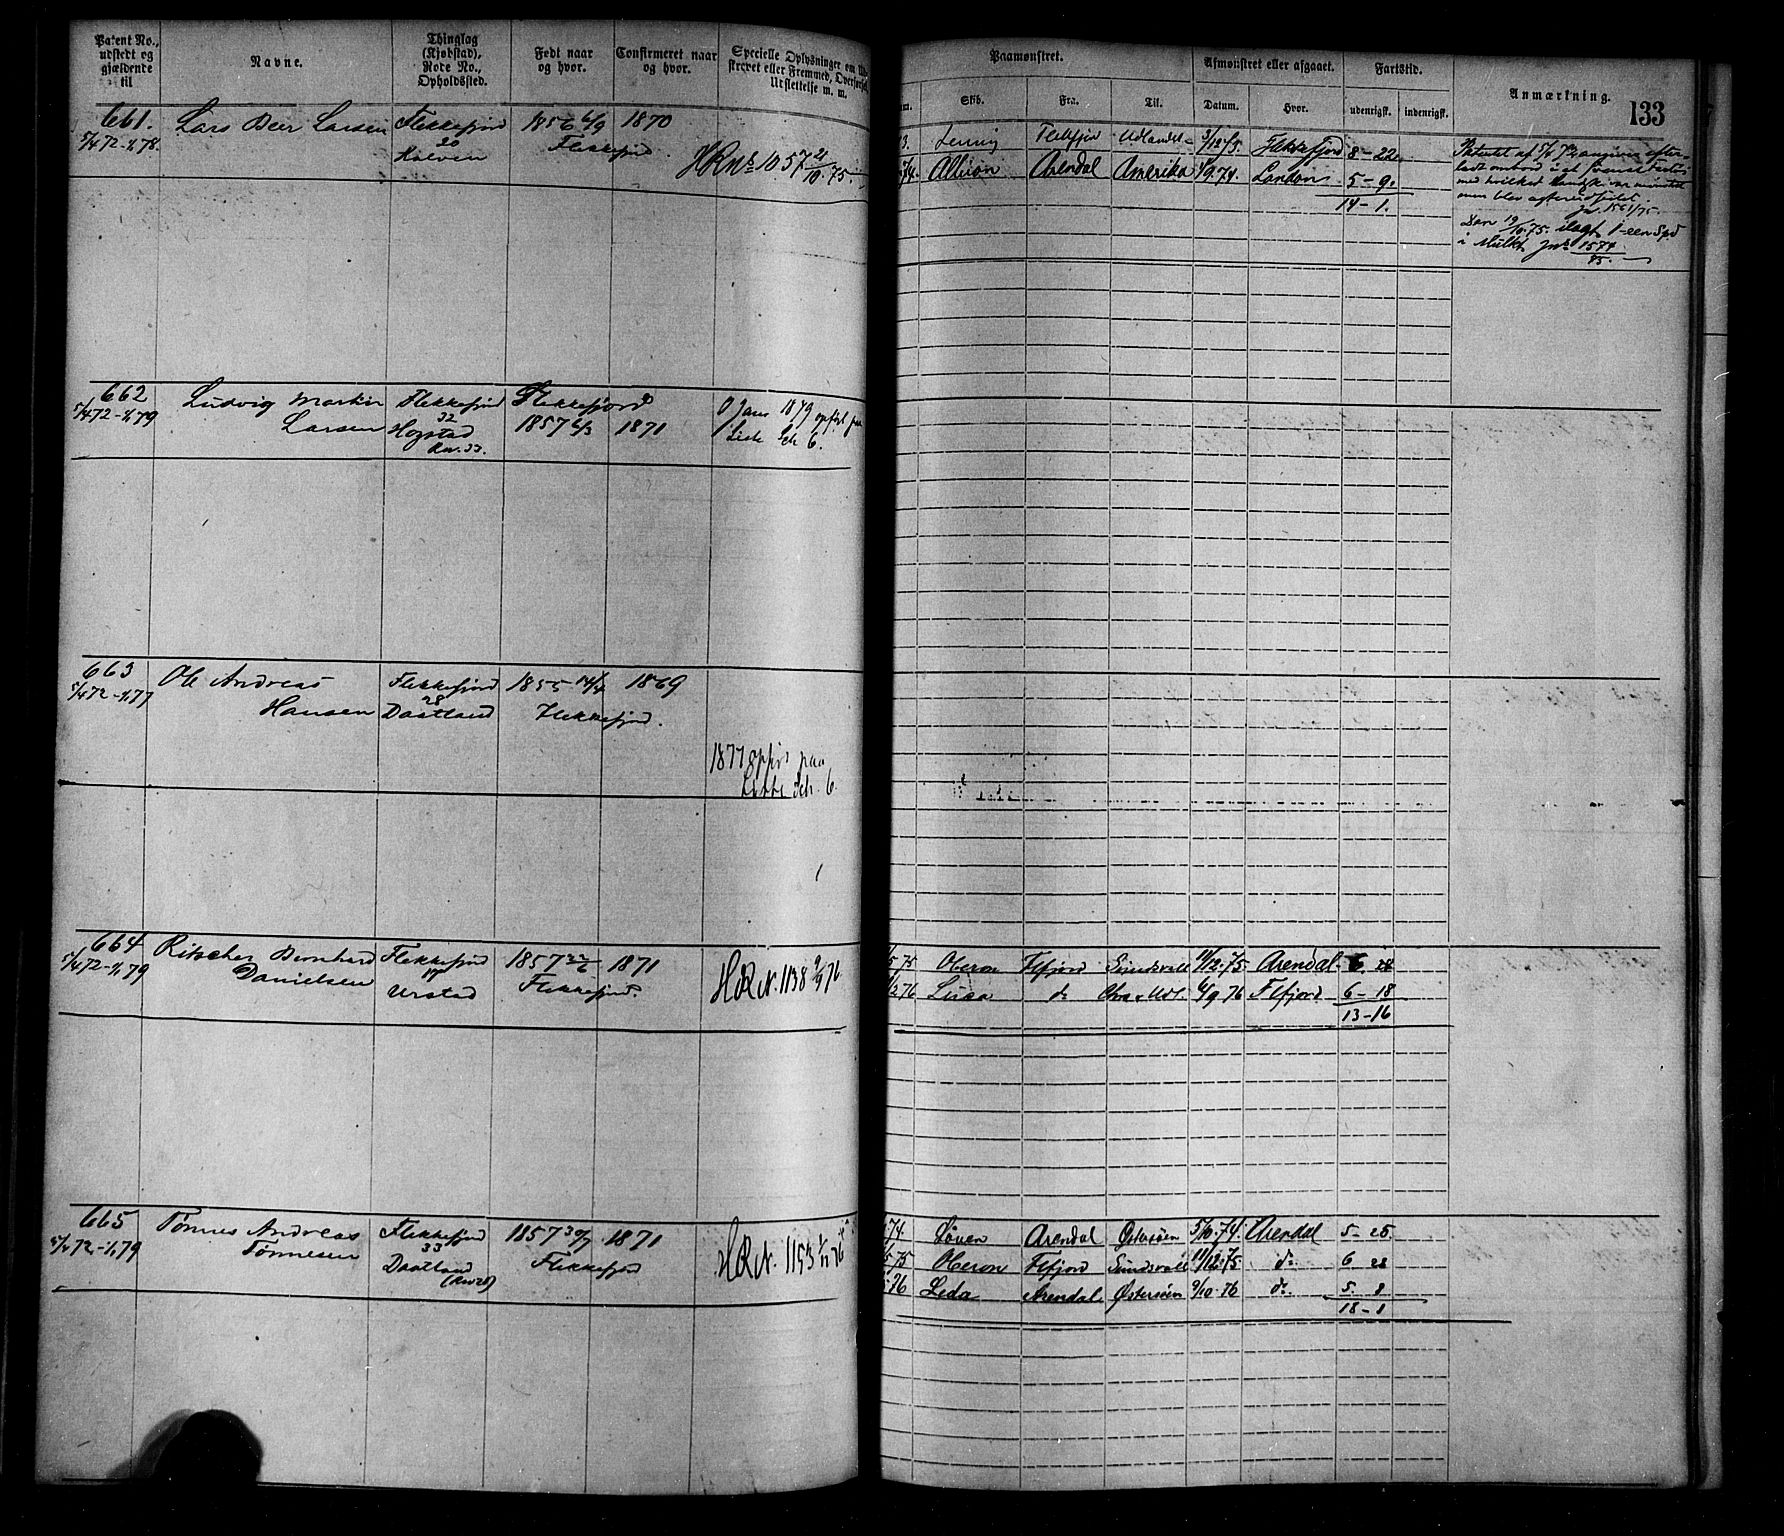 Patent No., udstedt og gjældende til
Navne.
Thinglag (Kjøbstad), Rode No., Opholdssted.
Født naar og hvor.
Confirmeret naar og hvor.
Specielle Oplysninger om
Udslettelse m. m.
Paamønstret.
Afmønstret eller afgaaet.
Fartstid.
Anmærkning.
133
Skib.
Fra.
Til.
Datum.
Hvor.
udenrigsk.
indenrigsk.
661.
5/4 72 - 1/1 78.
Lars Beer Larsen
Flekkefjord
20
Kalven
1856 6/9
Flekkefjord
1870
HR No 1057 21/10 75.
Flekkefjord
8 - 22
Albion
Arendal
Amerika
London
5 - 9.
14 - 1.
Den 19/10 75. ilagt 1 een Spd
i Mulkt Jno 1574/75.
662
5/4 72 - 1/1 79
Ludvig Martin
Larsen
Flekkefjord
32
Hogstad
Rn. 33.
Flekkefjord
1857 6/3
1871
Jan 1879 opført paa
Liste Litr 6.
663
5/4 72 - 1/1 77
Ole Andreas
Hansen
Flekkefjord
28
Daatland
1855 14/4
Flekkefjord.
1869
1877 opført paa
Liste Litr. 6.
664
5/4 72 - 1/1 79
Ritscher Bernhard
Danielsen
Flekkefjord
17
Urstad
1857 22/6
Flekkefjord.
1871
HR N. 1138 9/9 76
75
Oberon
Flfjord
Sundsvall
11/12. 75
Arendal
6. 28
76
Luna
do
6/9 76
Flfjord
6 - 18
13 - 16
665
5/4 72 - 1/1 79
Tønnes Andreas
Tønnesen
Flekkefjord
33
Daatland
(Rn 28)
1857 30/7
Flekkefjord
1871
HR N. 1153
74
Løven
Arendal
Østersøen
5/10. 74.
Arendal
5 - 25
75
Oberon
Flfjord
Sundsvall
11/12. 75
do
6 28
76
Leda
Arendal
Østersøen
9/10. 76
do
5. 8
18 - 1